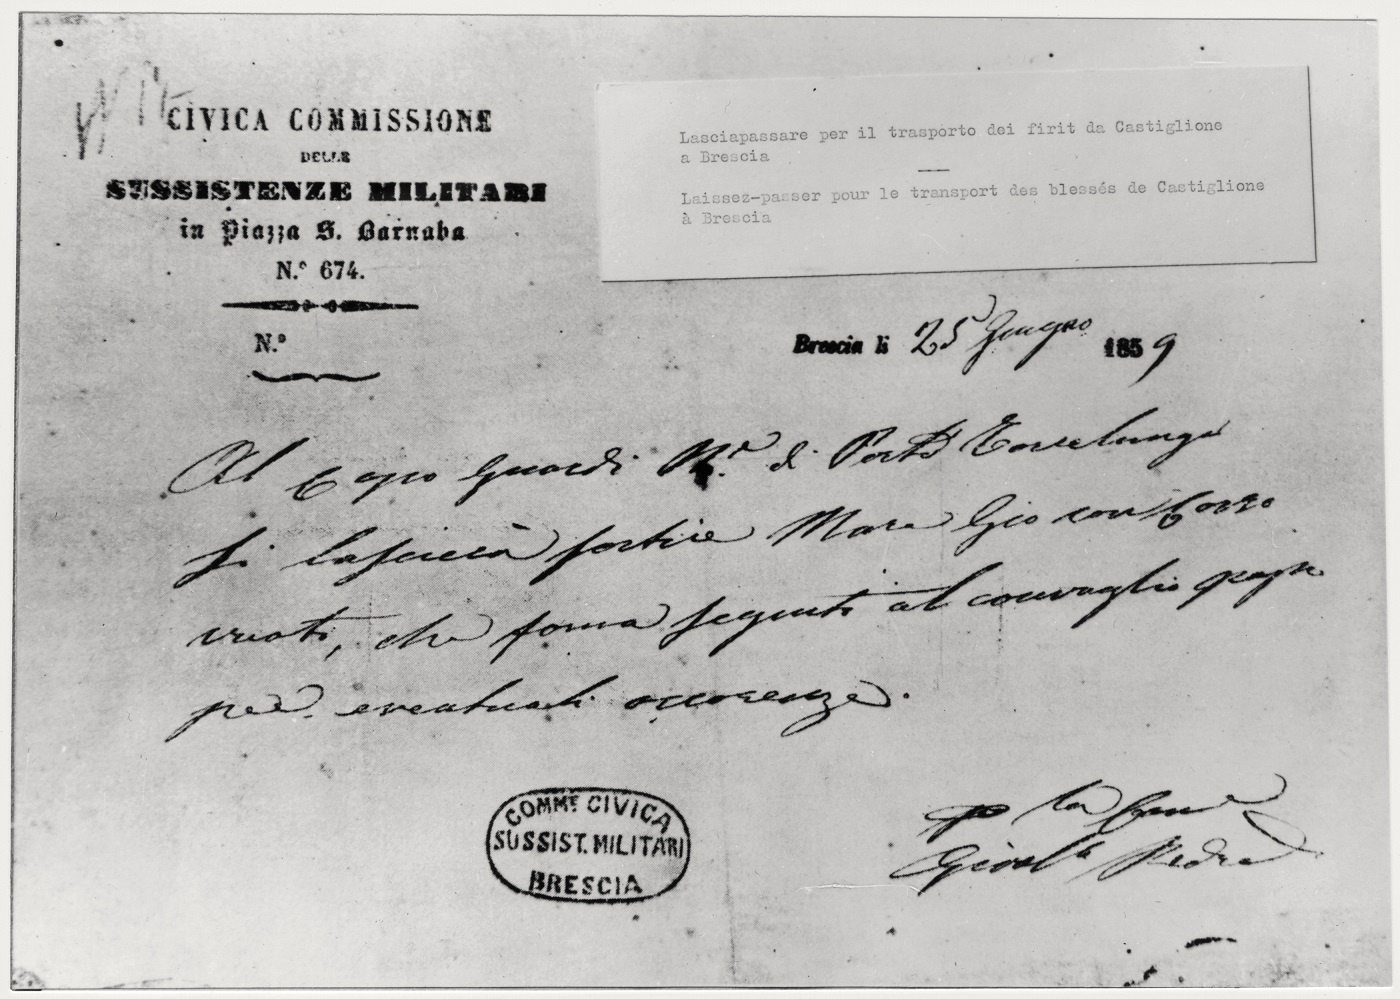 CIVICA COMMISSIONE
DELLE
SUSSISTENZE MILITARI
in Piazza S. Barnaba
N.° 674.
N.°
Lasciapassare per il trasporto dei firit da Castiglione
a Brescia
Laissez-passer pour le transport des blessés de Castiglione
à Brescia
Brescia li 25 Giugno 1859
Al Capo Guardi di Porta Torrelunga
Si lascierà sortire Mara Gio con
che forma seguito al convaglio
per eventuali occorenze.
COMM.E CIVICA
SUSSIST. MILITARI
BRESCIA
P la